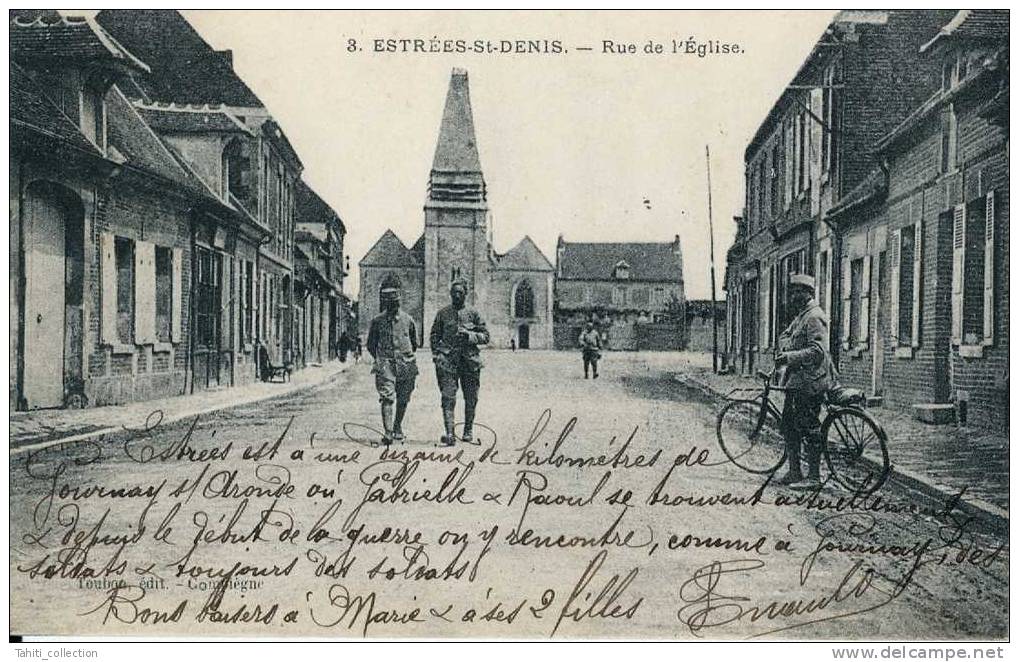 3. ESTRÉES-St-DENIS. — Rue de l'Église.
Estrées est à une dizaine de kilométres de
Gournay s/ Aronde où Gabrielle & Raoul se trouvent actuellement
& depuis le début de la guerre on y rencontre, comme à Gournay, des
soldats & toujours des soldats
Toubon, édit. - Compiègne
Bons baisers à Marie & à ses 2 filles
Tahiti_collection
www.delcampe.net